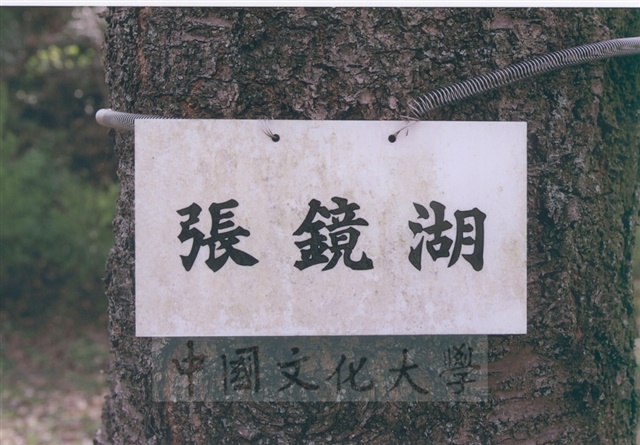 張鏡湖
中國文化大學